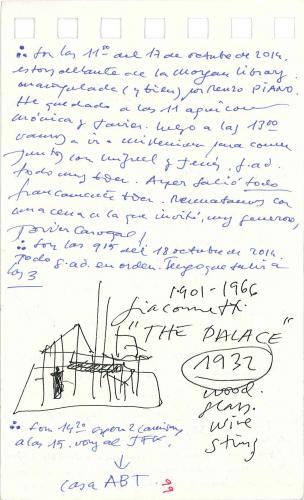 ∴ Son las 11⁰⁰ del 17 de octubre de 2014.
estoy delante de la Morgan Library.
manipulada (y bien) por renzo PIANO.
He quedado a las 11 aquí con
mónica y Javier. luego a las 13⁰⁰
vamos a ir a millenium para comer
juntos con miguel y Jesús. g.ad.
todo muy bien. Ayer salió todo
francamente bien. Rematamos con
una cena a la que invitó, muy generoso,
Javier
∴ Son las 9¹⁵ del 18 octubre de 2014.
todo g.ad. en orden. Tengo que subir a
las 3
1901-1966
Giacometti
"THE PALACE"
1932
wood.
glass.
wire
string
∴ Son 14²⁰ espero 2
a las 15. voy al JFK.
↓
casa ABT.
99